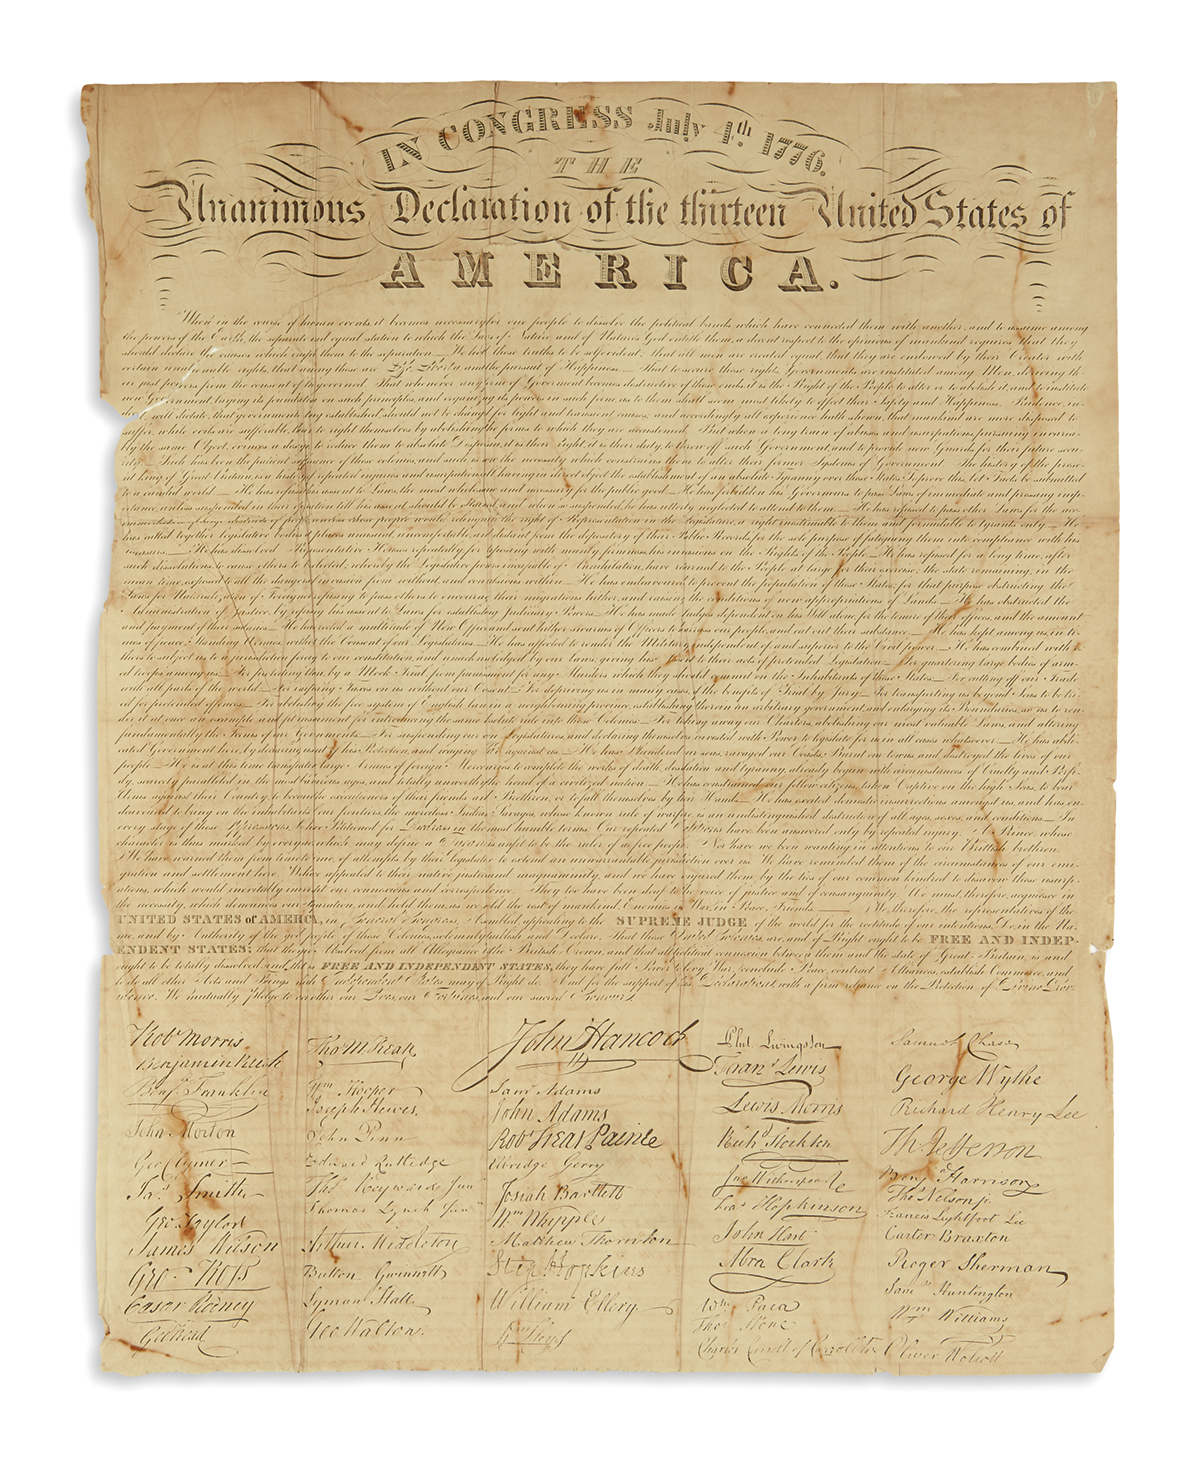 IN CONGRESS July 4th. 1776.
THE
Unanimous Declaration of the thirteen United States of
AMERICA.
When in the course of human events, it becomes necessary for one people to dissolve the political bands which have connected them with another, and to assume among
the powers of the Earth, the separate and equal station to which the Laws of Nature and of Natures God entitle them, a decent respect to the opinions of mankind requires that they
should declare the causes which impel them to the separation.— We hold these truths to be self evident: that all men are created equal, that they are endowed by their Creator with
certain unalienable rights, that among these are Life, Liberty and the pursuit of Happiness.— That to secure these rights, Governments are instituted among Men, deriving th-
eir just powers from the consent of the governed. That whenever any form of Goverment becomes destructive of these ends it is the Right of the People to alter or to abolish it, and to institute
new Government, laying its foundation on such principles, and organising its powers in such form, as to them shall seem most likely to effect their Safety and Happiness. Prudence, in-
deed, will dictate, that governments long established should not be changed for light and transient causes; and accordingly all experience hath shewn, that mankind are more disposed to
suffer, while evils are sufferable, than to right themselves by abolishing the forms to which they are accustomed. But when a long train of abuses and usurpations, pursuing invaria-
bly the same Object, evinces a design to reduce them to absolute Despotism, it is their right, it is their duty, to throw off such Government, and to provide new Guards for their future secu-
rity. Such has been the patient sufferance of these colonies, and such is now the necessity which constrains them to alter their former Systems of Government. The history of the prese-
nt king of Great Britain, is a history of repeated injuries and usurpations, all having in direct object the establishment of an absolute Tyranny over these States. To prove this, let Facts be submitted
to a candid world.— He has refused his assent to Laws, the most wholesome and necessary for the public good.— He has forbidden his Governors to pass Laws of immediate and pressing imp-
ortance, unless suspended in their operation till his assent should be obtained, and when so suspended, he has utterly neglected to attend to them.— He has refused to pass other Laws for the acc-
ommodation of large districts of people, unless those people would relinquish the right of Representation in the Legislature, a right inestimable to them and formidable to tyrants only.— He
has called together legislative bodies at places unusual, uncomfortable, and distant from the depository of their Public Records, for the sole purpose of fatiguing them into compliance with his
measures.— He has dissolved Representative Houses repeatedly, for opposing with manly firmness, his invasions on the Rights of the People.— He has refused for a long time, after
such dissolutions, to cause others to be elected; whereby the Legislative powers incapable of Annihilation, have returned to the People at large for their exercise; the state remaining, in the
mean time, exposed to all the dangers of invasion from without and convulsions within.— He has endeavoured to prevent the population of these States; for that purpose obstructing the
Laws for Naturalization of Foreigners; refusing to pass others to encourage their migrations hither, and raising the conditions of new appropriations of Lands.— He has obstructed the
Administration of Justice, by refusing his assent to Laws for establishing Judiciary Powers.— He has made Judges dependent on his Will alone, for the tenure of their offices, and the amount
and payment of their salaries.— He has erected a multitude of New Offices and sent hither swarms of Officers to harrass our people, and eat out their substance.— He has kept among us, in ti-
mes of peace, Standing Armies, without the Consent of our Legislatures.— He has affected to render the Military independent of and superior to the Civil power.— He has combined with o-
thers to subject us to a jurisdiction foreign to our constitution, and unacknowledged by our laws; giving his Assent to their acts of pretended Legislation:— For quartering large bodies of arm-
ed troops among us:— For protecting them, by a Mock Trial, from punishment for any Murders which they should commit on the Inhabitants of these States:— For cutting off our Trade
with all parts of the world:— For imposing Taxes on us without our Consent:— For depriving us in many cases, of the benefits of Trial by Jury:— For transporting us beyond Seas to be tri-
ed for pretended offences:— For abolishing the free system of English laws in a neighbouring province, establishing therein an arbitrary government, and enlarging its Boundaries, so as to ren-
der it at once an example and fit instrument for introducing the same absolute rule into these Colonies:— For taking away our Charters, abolishing our most valuable Laws, and altering
fundamentally the Forms of our Governments:— For suspending our own Legislatures, and declaring themselves invested with Power to legislate for us in all cases whatsoever.— He has abdi-
cated Government here, by declaring us out of his Protection, and waging War against us.— He has Plundered our seas, ravaged our Coasts, Burnt our towns and destroyed the lives of our
people.— He is at this time transporting large Armies of foreign Mercenaries to complete the works of death, desolation and tyranny, already begun with circumstances of Cruelty and Perfi-
dy, scarcely paralleled in the most barbarous ages, and totally unworthy the head of a civilized nation.— He has constrained our fellow citizens, taken Captive on the high Seas, to bear
Arms against their Country, to become the executioners of their friends and Brethren, or to fall themselves by their Hands.— He has excited domestic insurrections amongst us, and has en-
deavoured to bring on the inhabitants of our frontiers, the merciless Indian Savages, whose known rule of warfare, is an undistinguished destruction of all ages, sexes, and conditions.— In
every stage of these Oppressions, We have Petitioned for Redress in the most humble terms: Our repeated Petitions have been answered only by repeated injury. A Prince, whose
character is thus marked by every act which may define a Tyrant is unfit to be the ruler of a free people. Nor have we been wanting in attentions to our British brethren.
We have warned them from time to time, of attempts by their legislature to extend an unwarrantable jurisdiction over us. We have reminded them of the circumstances of our emi-
gration and settlement here. We have appealed to their native justice and magnanimity, and we have conjured them by the ties of our common kindred to disavow these usurp-
ations, which would inevitably interrupt our connexions and correspondence. They too have been deaf to the voice of justice and of consanguinity. We must, therefore, acquiesce in
the necessity, which denounces our Separation, and hold them, as we hold the rest of mankind, Enemies in War, in Peace, Friends.— We, therefore, the representatives of the
UNITED STATES of AMERICA, in General Congress, Assembled, appealing to the SUPREME JUDGE of the world for the rectitude of our intentions, Do, in the Na-
me, and by Authority of the good people of these Colonies, solemnly publish and Declare, That these United Colonies, are, and of Right ought to be FREE AND INDEP-
ENDENT STATES; that they are Absolved from all Allegiance to the British Crown, and that all political connexion between them and the state of Great Britain, is and
ought to be totally dissolved; and that as FREE AND INDEPENDENT STATES, they have full Power to levy War, conclude Peace, contract Alliances, establish Commerce, and
to do all other Acts and Things which Independent States may of Right do. And for the support of this Declaration, with a firm reliance on the Protection of Divine Prov-
idence, We mutually pledge to each other our Lives, our Fortunes, and our sacred Honour.
Robt Morris
Benjamin Rush
Benja. Franklin
John Morton
Geo Clymer
Jas. Smith
Geo. Taylor
James Wilson
Geo. Ross
Cæsar Rodney
Geo Read
Tho M:Kean
Wm Hooper
Joseph Hewes.
John Penn
Edward Rutledge
Thos Heyward Junr
Thomas Lynch Junr
Arthur Middleton
Button Gwinnett
Lyman Hall.
Geo Walton.
John Hancock
Saml Adams
John Adams
Robt Treat Paine
Elbridge Gerry
Josiah Bartlett
Wm Whipple
Matthew Thornton
Step Hopkins
William Ellery
Wm Floyd
Phil. Livingston
Frans Lewis
Lewis Morris
Richd Stockton
Jno Witherspoon
Fras Hopkinson
John Hart
Abra Clark
Wm Paca
Thos Stone
Charles Carroll of Carrollton
Samuel Chase
George Wythe
Richard Henry Lee
Th Jefferson
Benja Harrison
Thos Nelson jr.
Francis Lightfoot Lee
Carter Braxton
Roger Sherman
Saml Huntington
Wm Williams
Oliver Wolcott